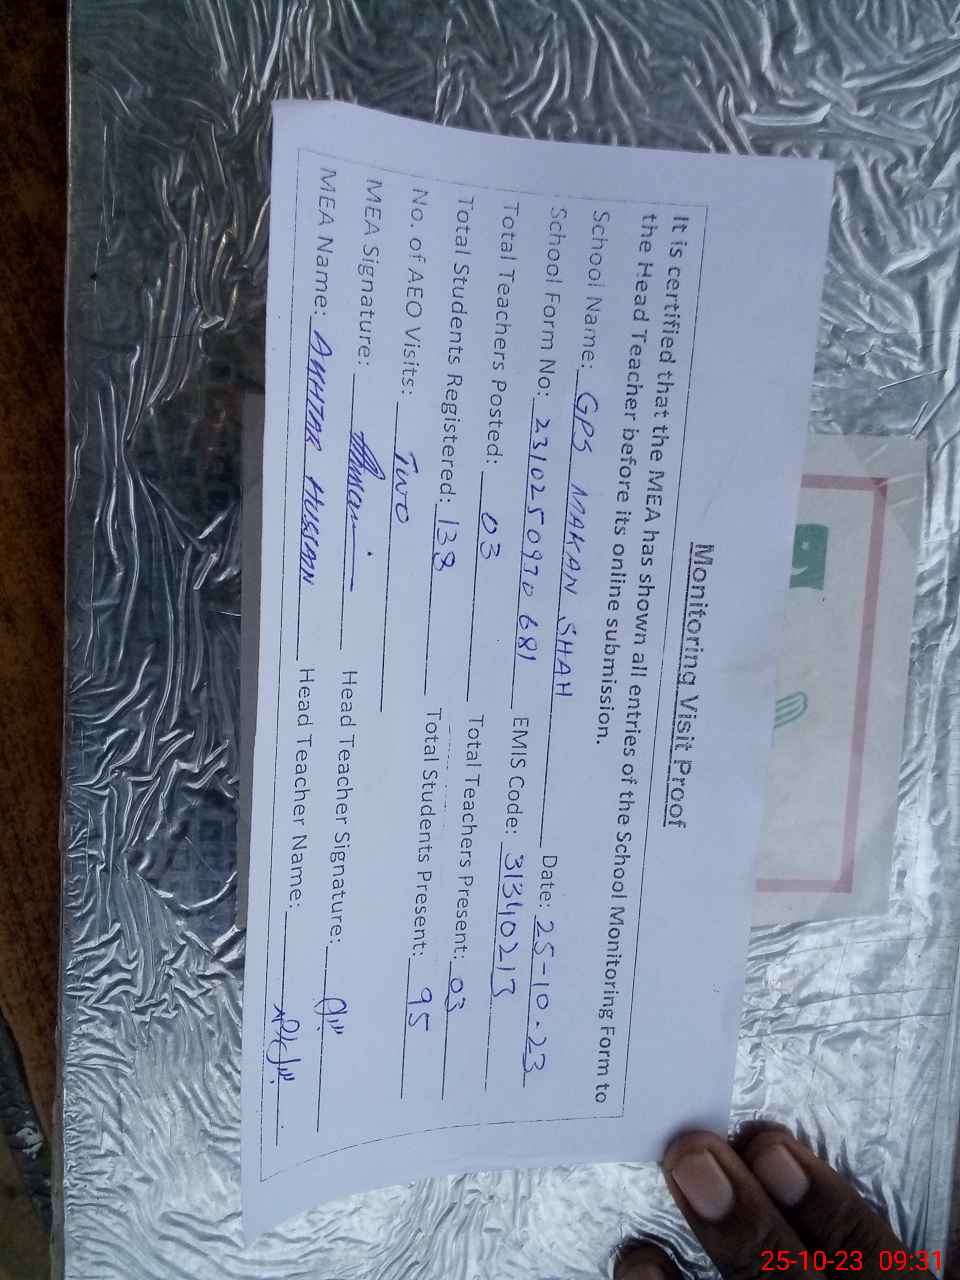 Monitoring Visit Proof
It is certified that the MEA has shown all entries of the School Monitoring Form to
the Head Teacher before its online submission.
School Name: GPS MAKAN SHAH Date: 25-10-23
School Form No: 2310250970681 EMIS Code: 31340213
Total Teachers Posted: 03 Total Teachers Present: 03
Total Students Registered: 138 Total Students Present: 95
No. of AEO Visits: TWO
MEA Signature: Head Teacher Signature:
MEA Name: AKHTAR HUSSAIN Head Teacher Name:
25-10-23 09:31